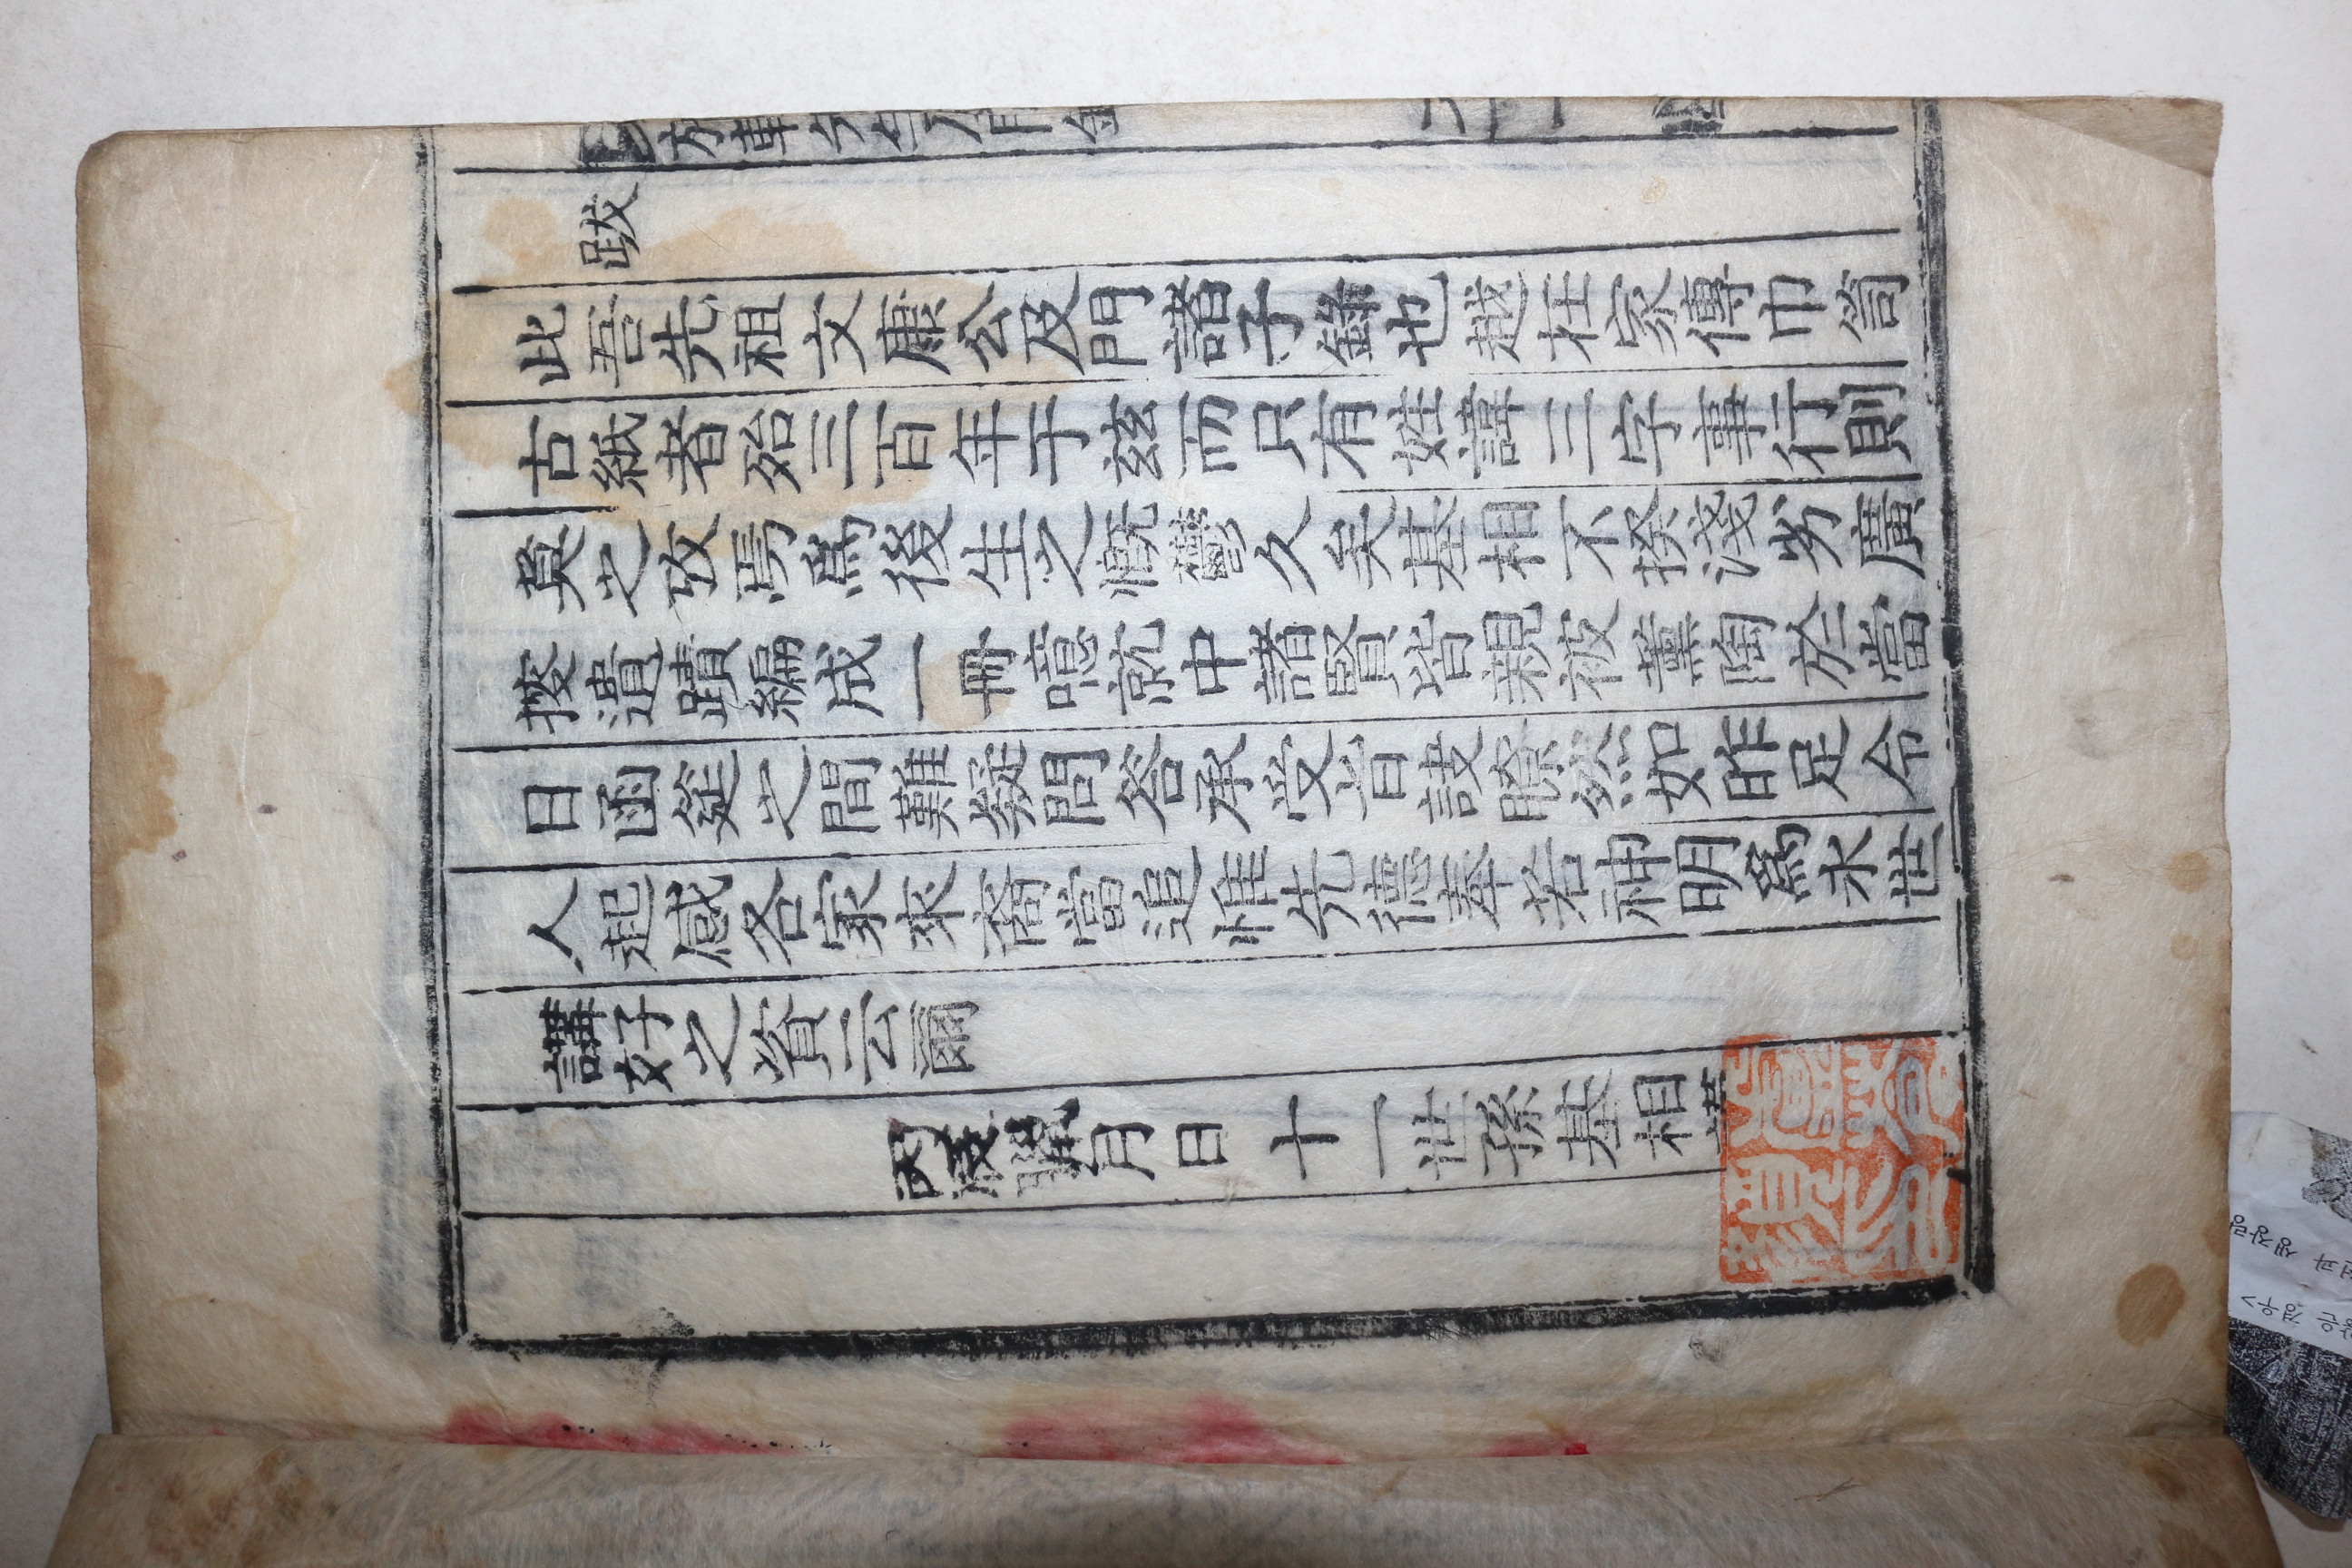 跋
此吾先祖文康公及門諸子錄也越在家傳巾笥
古紙者殆三百年于玆而只有姓諱三字事行則
莫之攷焉爲後生之慨鬱久矣基相不揆淺劣廣
搜遺蹟編成一冊噫就中諸賢皆親被薰陶於當
日函筵之間難疑問答承受旨訣瞭然如昨足令
人起感各家來裔當追惟先德奉若神明爲永世
講好之資云爾
臘月日十一世孫基相